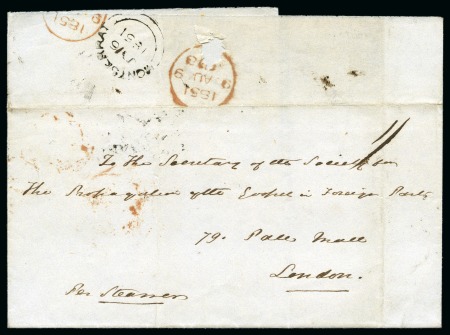 1851
MONTSERRAT
JY 16
1851
9 AU 9
1851
To the Secretary of the Society for
the Propagation of the Gospel in Foreign Parts
79. Pall Mall
London.
Per Steamer